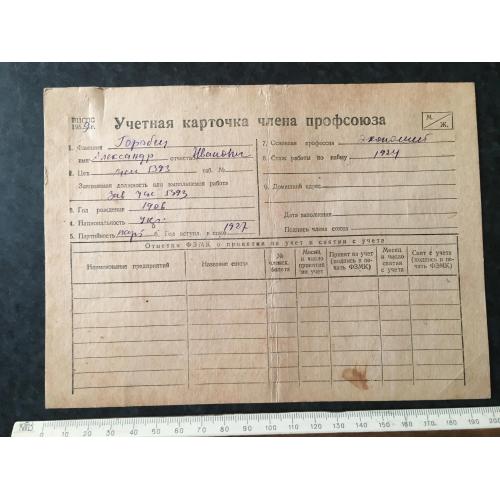 ВЦСПС
195 г.
Учетная карточка члена профсоюза
М.
Ж.
1. Фамилия Горобец
имя Александр отчество Иванович
2. Цех таб. №
Занимаемая должность или выполняемая работа
3. Год рождения 1906
4. Национальность укр.
5. Партийность 6. Год вступл. в проф. 1927
7. Основная профессия экономист
8. Стаж работы по найму 1924
9. Домашний адрес
Дата заполнения
Подпись члена союза
Отметки ФЗМК о принятии на учет и снятии с учета
Наименование предприятий
Название союза
№ членск. билета
Месяц и число принятия на учет
Принят на учет (подпись и печать ФЗМК)
Месяц и число снятия с учета
Снят с учета (подпись и печать ФЗМК)
0 10 20 30 40 50 60 70 80 90 100 110 120 130 140 150 160 170 180 190 200